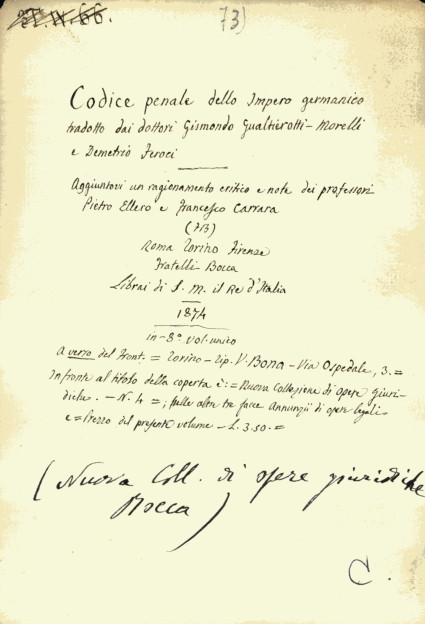 73)
Codice penale dello Impero germanico
tradotto dai dottori Gismondo Gualtierotti-Morelli
e Demetrio Feroci
Aggiuntovi un ragionamento critico e note dei professori
Pietro Ellero e Francesco Carrara
(713)
Roma Torino Firenze
Fratelli Bocca
Librai di S. M. il Re d'Italia
1874
in-8° vol. unico
A verso del Front. = Torino - Tip. V. Bona - Via Ospedale, 3. =
In fronte al titolo della coperta è: = Nuova Collezione di Opere Giuri-
diche. - N. 4 = ; sulle altre tre facce Annunzii di opere legali
e = Prezzo del presente volume - L. 3.50. =
(Nuova Coll. di opere giuridiche
Bocca)
C.